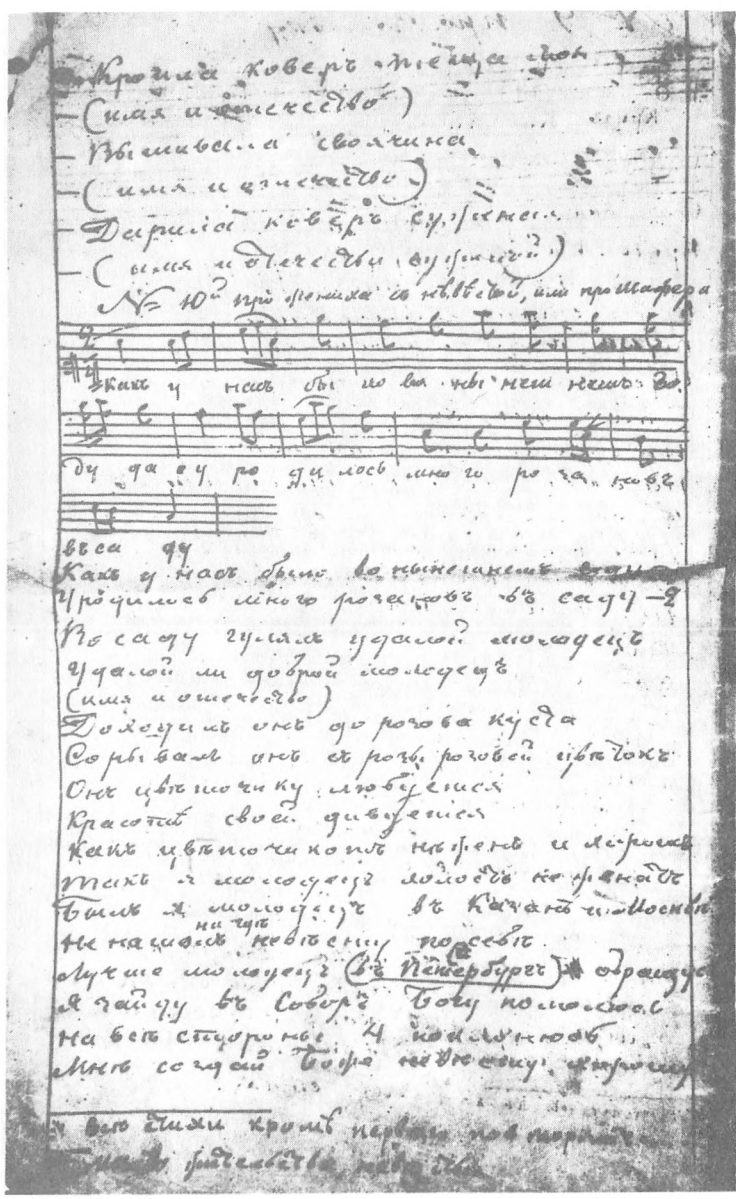 Кроила коверъ теща моя
(имя и отечество)
Вышивала своячина
(имя и отечество)
Дарила коверъ суженая
(имя и отечество суженой)
№ 10й про жениха съ невѣстой, или про шафера
Какъ у насъ бы ло во ны неш немъ го
ду да у ро ди лось мно го ро за новъ
въ са ду
Какъ у насъ было во нынешнемъ
Уродилось много розановъ въ саду —2
Во саду гулялъ удалой молодецъ
Удалой ли доброй молодецъ
(имя и отечество)
Доходилъ онъ до розова куста
Сорывалъ онъ съ розы розовой цвѣтокъ
Онъ цвѣточику любуется
Красотѣ своей дивуется
Какъ цвѣточикъ нѣженъ и
такъ я молодецъ холостъ не женатъ
Былъ я молодецъ въ Казанѣ и Москвѣ
Не нашолъ невѣсту по себѣ
Лучше молодецъ (въ Петербургъ)
Я зайду въ Соборъ Богу помолюсь
На всѣ стороны 4 поклонюсь
Мнѣ создай Боже невѣсту хорошу
всѣ стихи кромѣ перваго